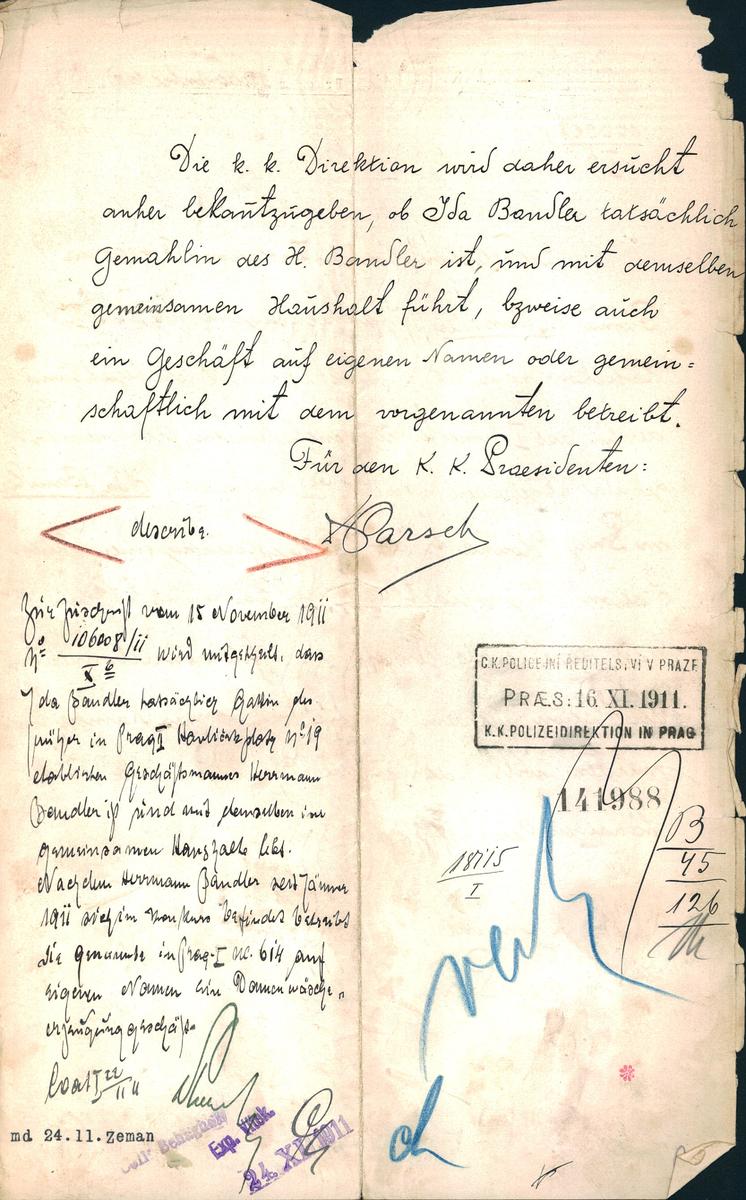 Die k. k. Direktion wird daher ersucht
anher bekautzugeben, ob Ida Bandler tatsächlich
Gemahlin des H. Bandler ist, und mit demselben
gemeinsamen Haushalt führt, bzweise auch
ein Geschäft auf eigenen Namen oder gemein=
schaftlich mit dem vorgenannten betreibt.
Für den K. K. Praesidenten:
describe.
Zur Zuschrift vom 15 November 1911
No 106008/11 wird mitgetheilt, dass
X 6
Ida Bandler tatsächlich Gattin des
früher in Prag I Havličekplatz No 19
etablirten Geschäftsmannes Herrmann
Bandler ist und mit demselben im
gemeinsamen Haushalte lebt.
Nachdem Herrmann Bandler seit Jänner
1911 sich im Konkurs befindet betreibt
die Genannte in Prag-I Nc. 614 auf
eigenen Namen ein Damenwäsche-
erzeugungsgeschäft.
C.K. POLICEJNÍ ŘEDITELSTVÍ V PRAZE
PRÆS: 16. XI. 1911.
K.K. POLIZEIDIREKTION IN PRAG
141988
18115
I
B
45
126
22/11 11
md 24.11. Zeman
Exp. Visk.
24. XI. 1911